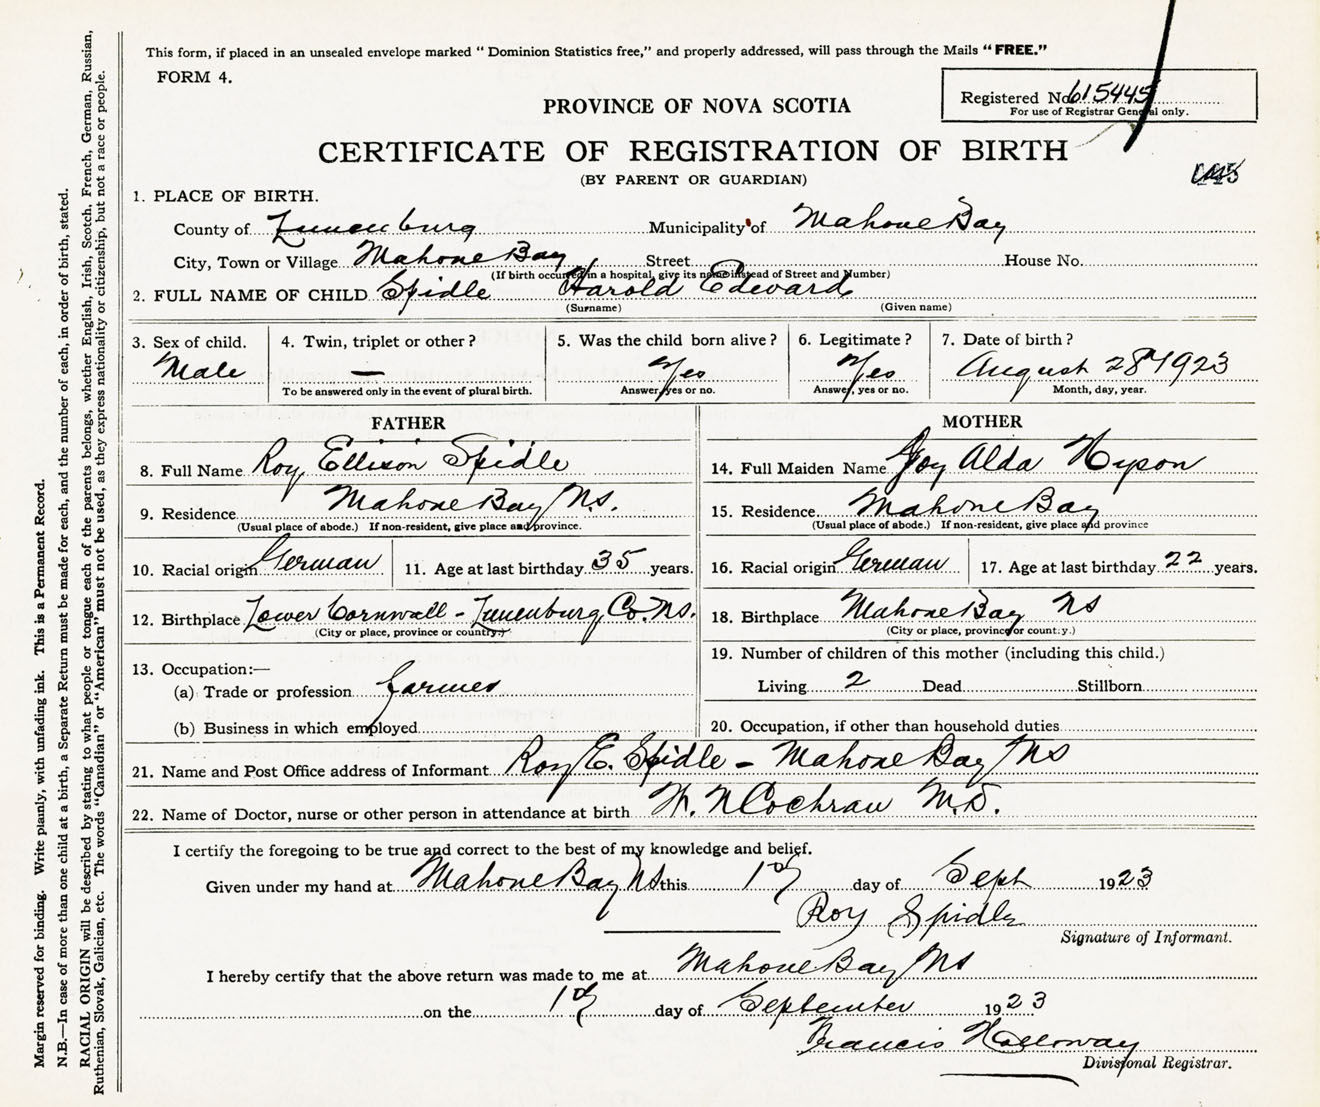 This form, if placed in an unsealed envelope marked “ Dominion Statistics free,” and properly addressed, will pass through the Mails “ FREE.”
FORM 4.
Registered No. 615445
For use of Registrar General only.
PROVINCE OF NOVA SCOTIA
CERTIFICATE OF REGISTRATION OF BIRTH
(BY PARENT OR GUARDIAN)
1. PLACE OF BIRTH.
County of Lunenburg Municipality of Mahone Bay
City, Town or Village Mahone Bay Street House No.
(If birth occurred in a hospital, give its name instead of Street and Number)
2. FULL NAME OF CHILD Spidle Harold Edward
(Surname) (Given name)
3. Sex of child. 4. Twin, triplet or other? 5. Was the child born alive? 6. Legitimate? 7. Date of birth?
Male — Yes Yes August 28th 1923
To be answered only in the event of plural birth. Answer, yes or no. Answer, yes or no. Month, day, year.
FATHER
8. Full Name Roy Ellison Spidle
9. Residence Mahone Bay N.S.
(Usual place of abode.) If non-resident, give place and province.
10. Racial origin German 11. Age at last birthday 35 years.
12. Birthplace Lower Cornwall - Lunenburg Co. N.S.
(City or place, province or country.)
13. Occupation:—
(a) Trade or profession farmer
(b) Business in which employed
MOTHER
14. Full Maiden Name Joy Alda Hyson
15. Residence Mahone Bay
(Usual place of abode.) If non-resident, give place and province
16. Racial origin German 17. Age at last birthday 22 years.
18. Birthplace Mahone Bay NS
(City or place, province or country.)
19. Number of children of this mother (including this child.)
Living 2 Dead Stillborn
20. Occupation, if other than household duties
21. Name and Post Office address of Informant Roy E. Spidle - Mahone Bay NS
22. Name of Doctor, nurse or other person in attendance at birth W. N Cochran M.D.
I certify the foregoing to be true and correct to the best of my knowledge and belief.
Given under my hand at Mahone Bay NS this day of Sept 1923
Roy Spidle
Signature of Informant.
I hereby certify that the above return was made to me at Mahone Bay NS
on the day of September 1923
Francis Holloway
Divisional Registrar.
Margin reserved for binding. Write plainly, with unfading ink. This is a Permanent Record.
N.B.—In case of more than one child at a birth, a Separate Return must be made for each, and the number of each, in order of birth, stated.
RACIAL ORIGIN will be described by stating to what people or tongue each of the parents belongs, whether English, Irish, Scotch, French, German, Russian,
Ruthenian, Slovak, Galician, etc. The words “Canadian” or “American” must not be used, as they express nationality or citizenship, but not a race or people.